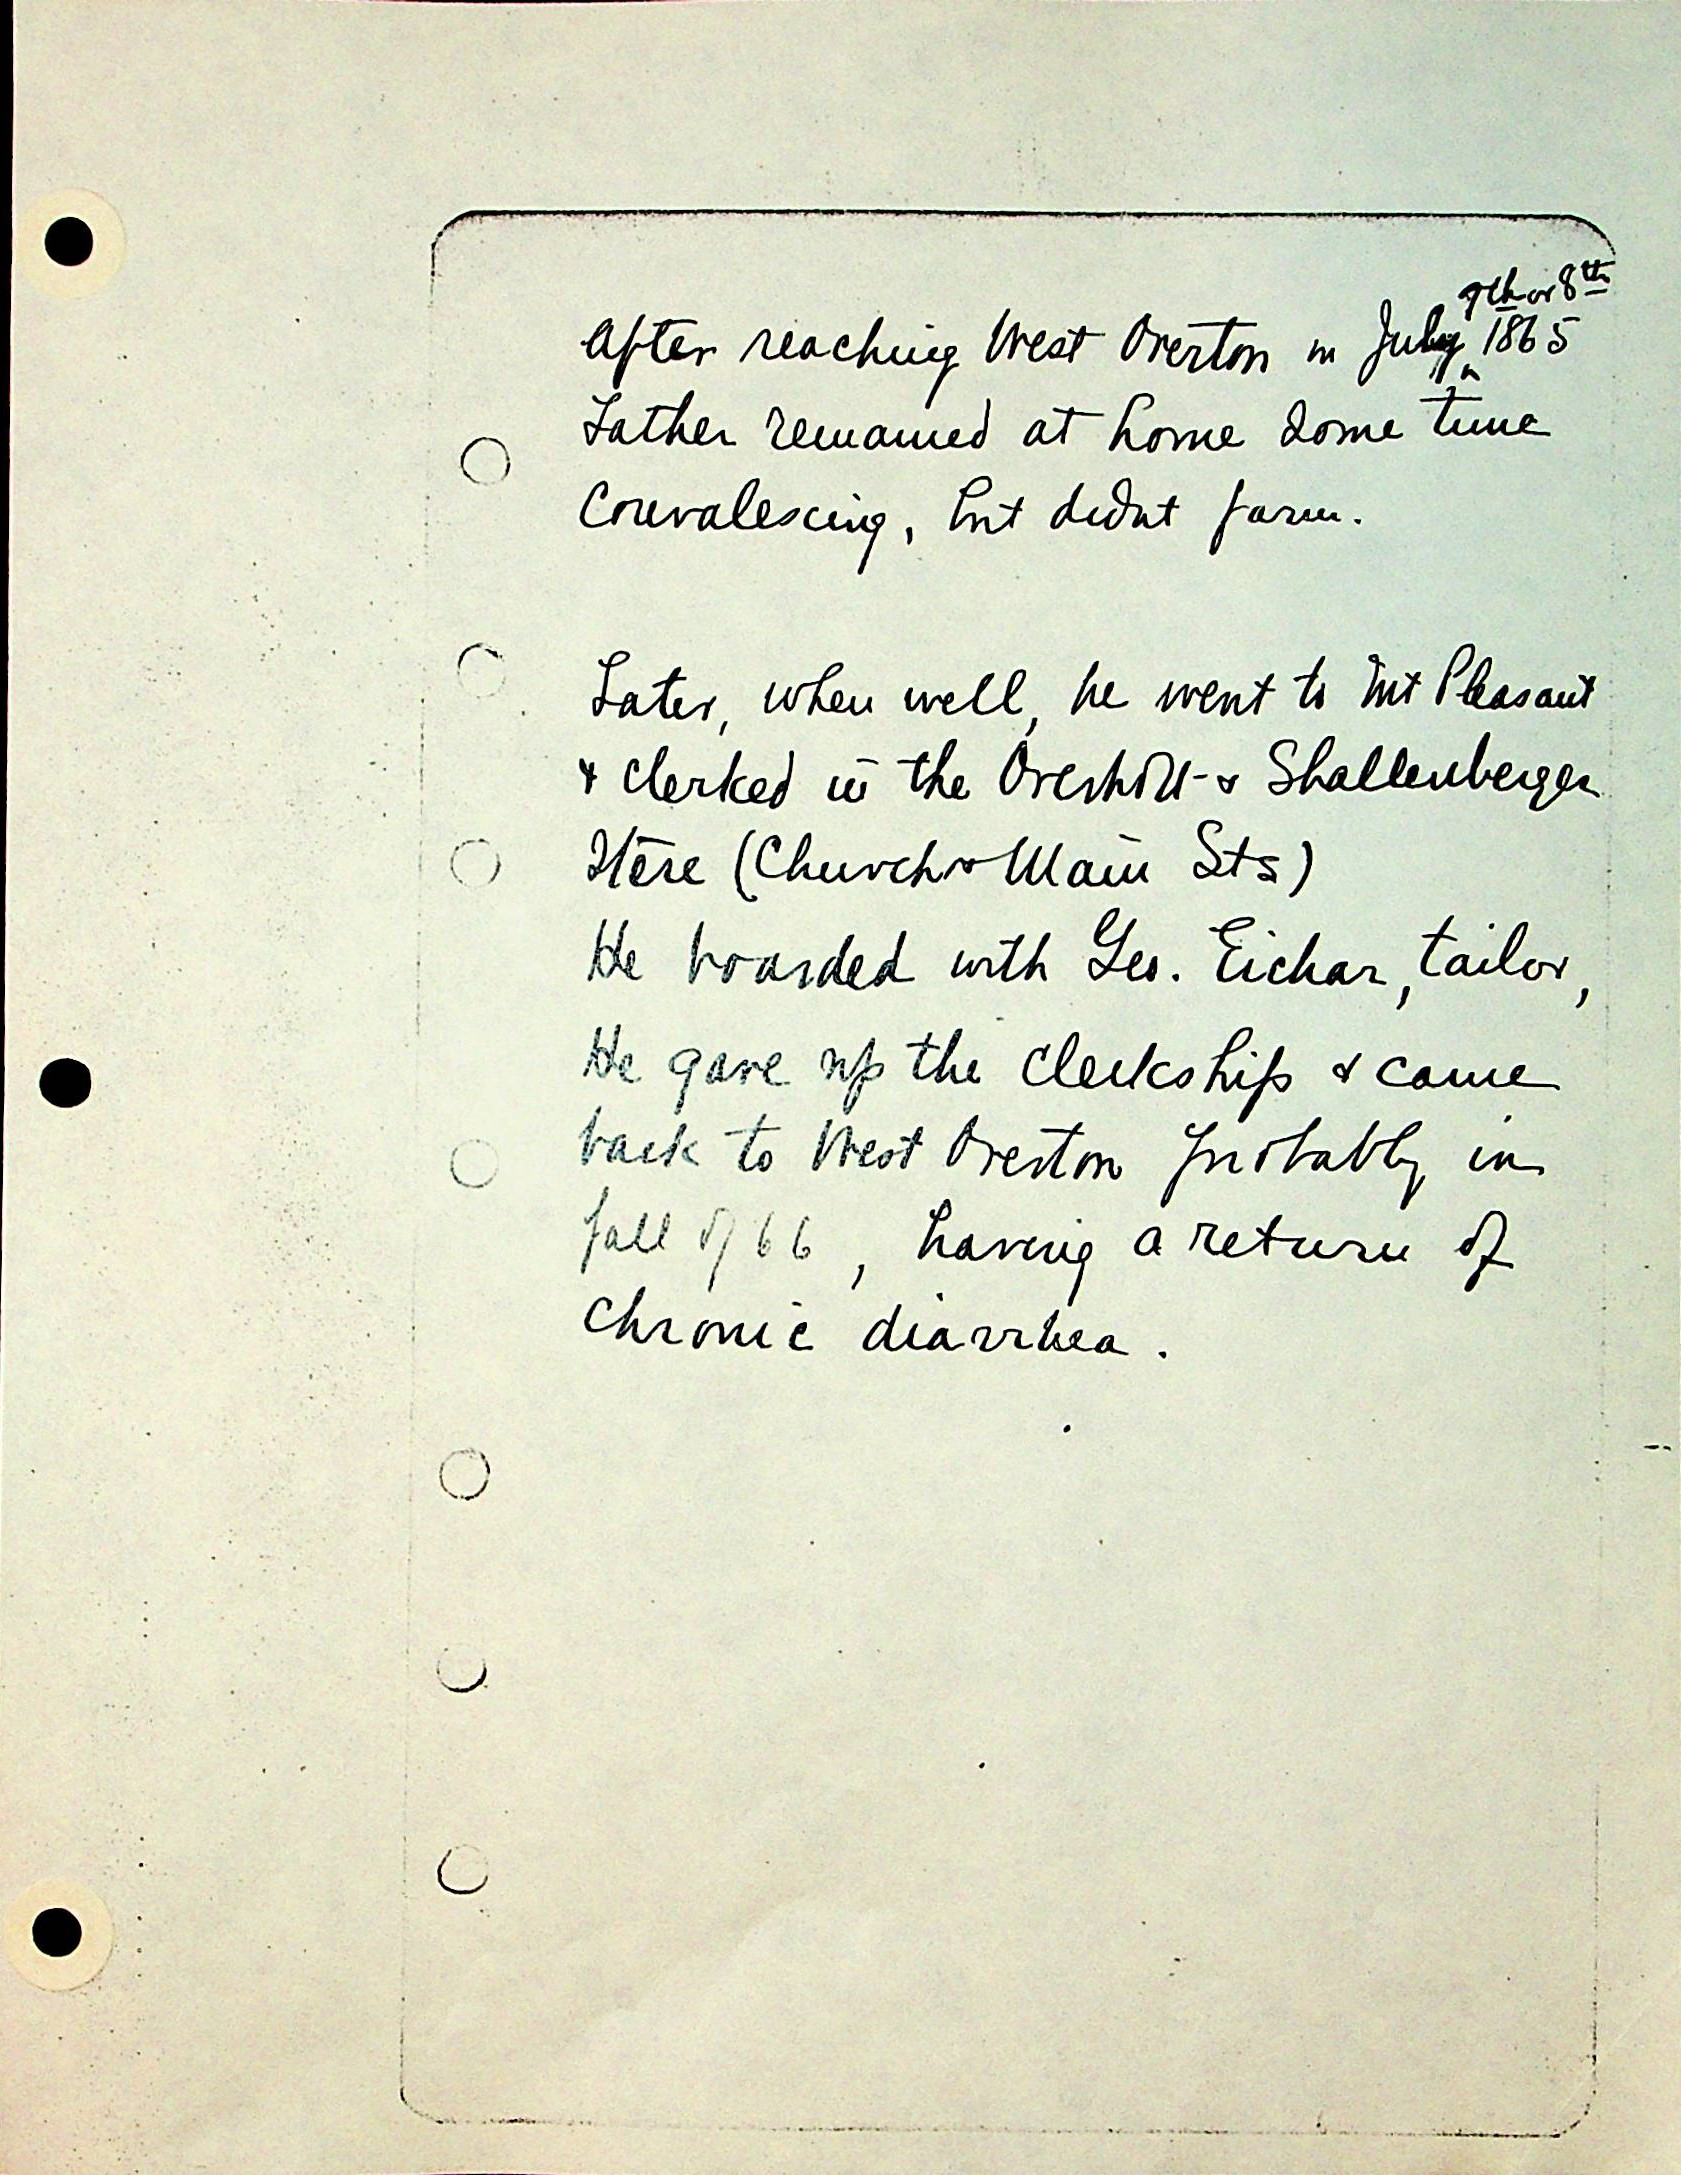 After reaching West Overton in July 7th or 8th 1865
Father remained at home some time
Convalescing, but didnt farm.
Later, when well, he went to Mt Pleasant
& clerked in the Overholt & Shallenberger
Store (Church & Main Sts)
He boarded with Geo. Eichar, tailor,
He gave up the clerkship & came
back to West Overton probably in
fall of 66, having a return of
Chronic diarrhea.